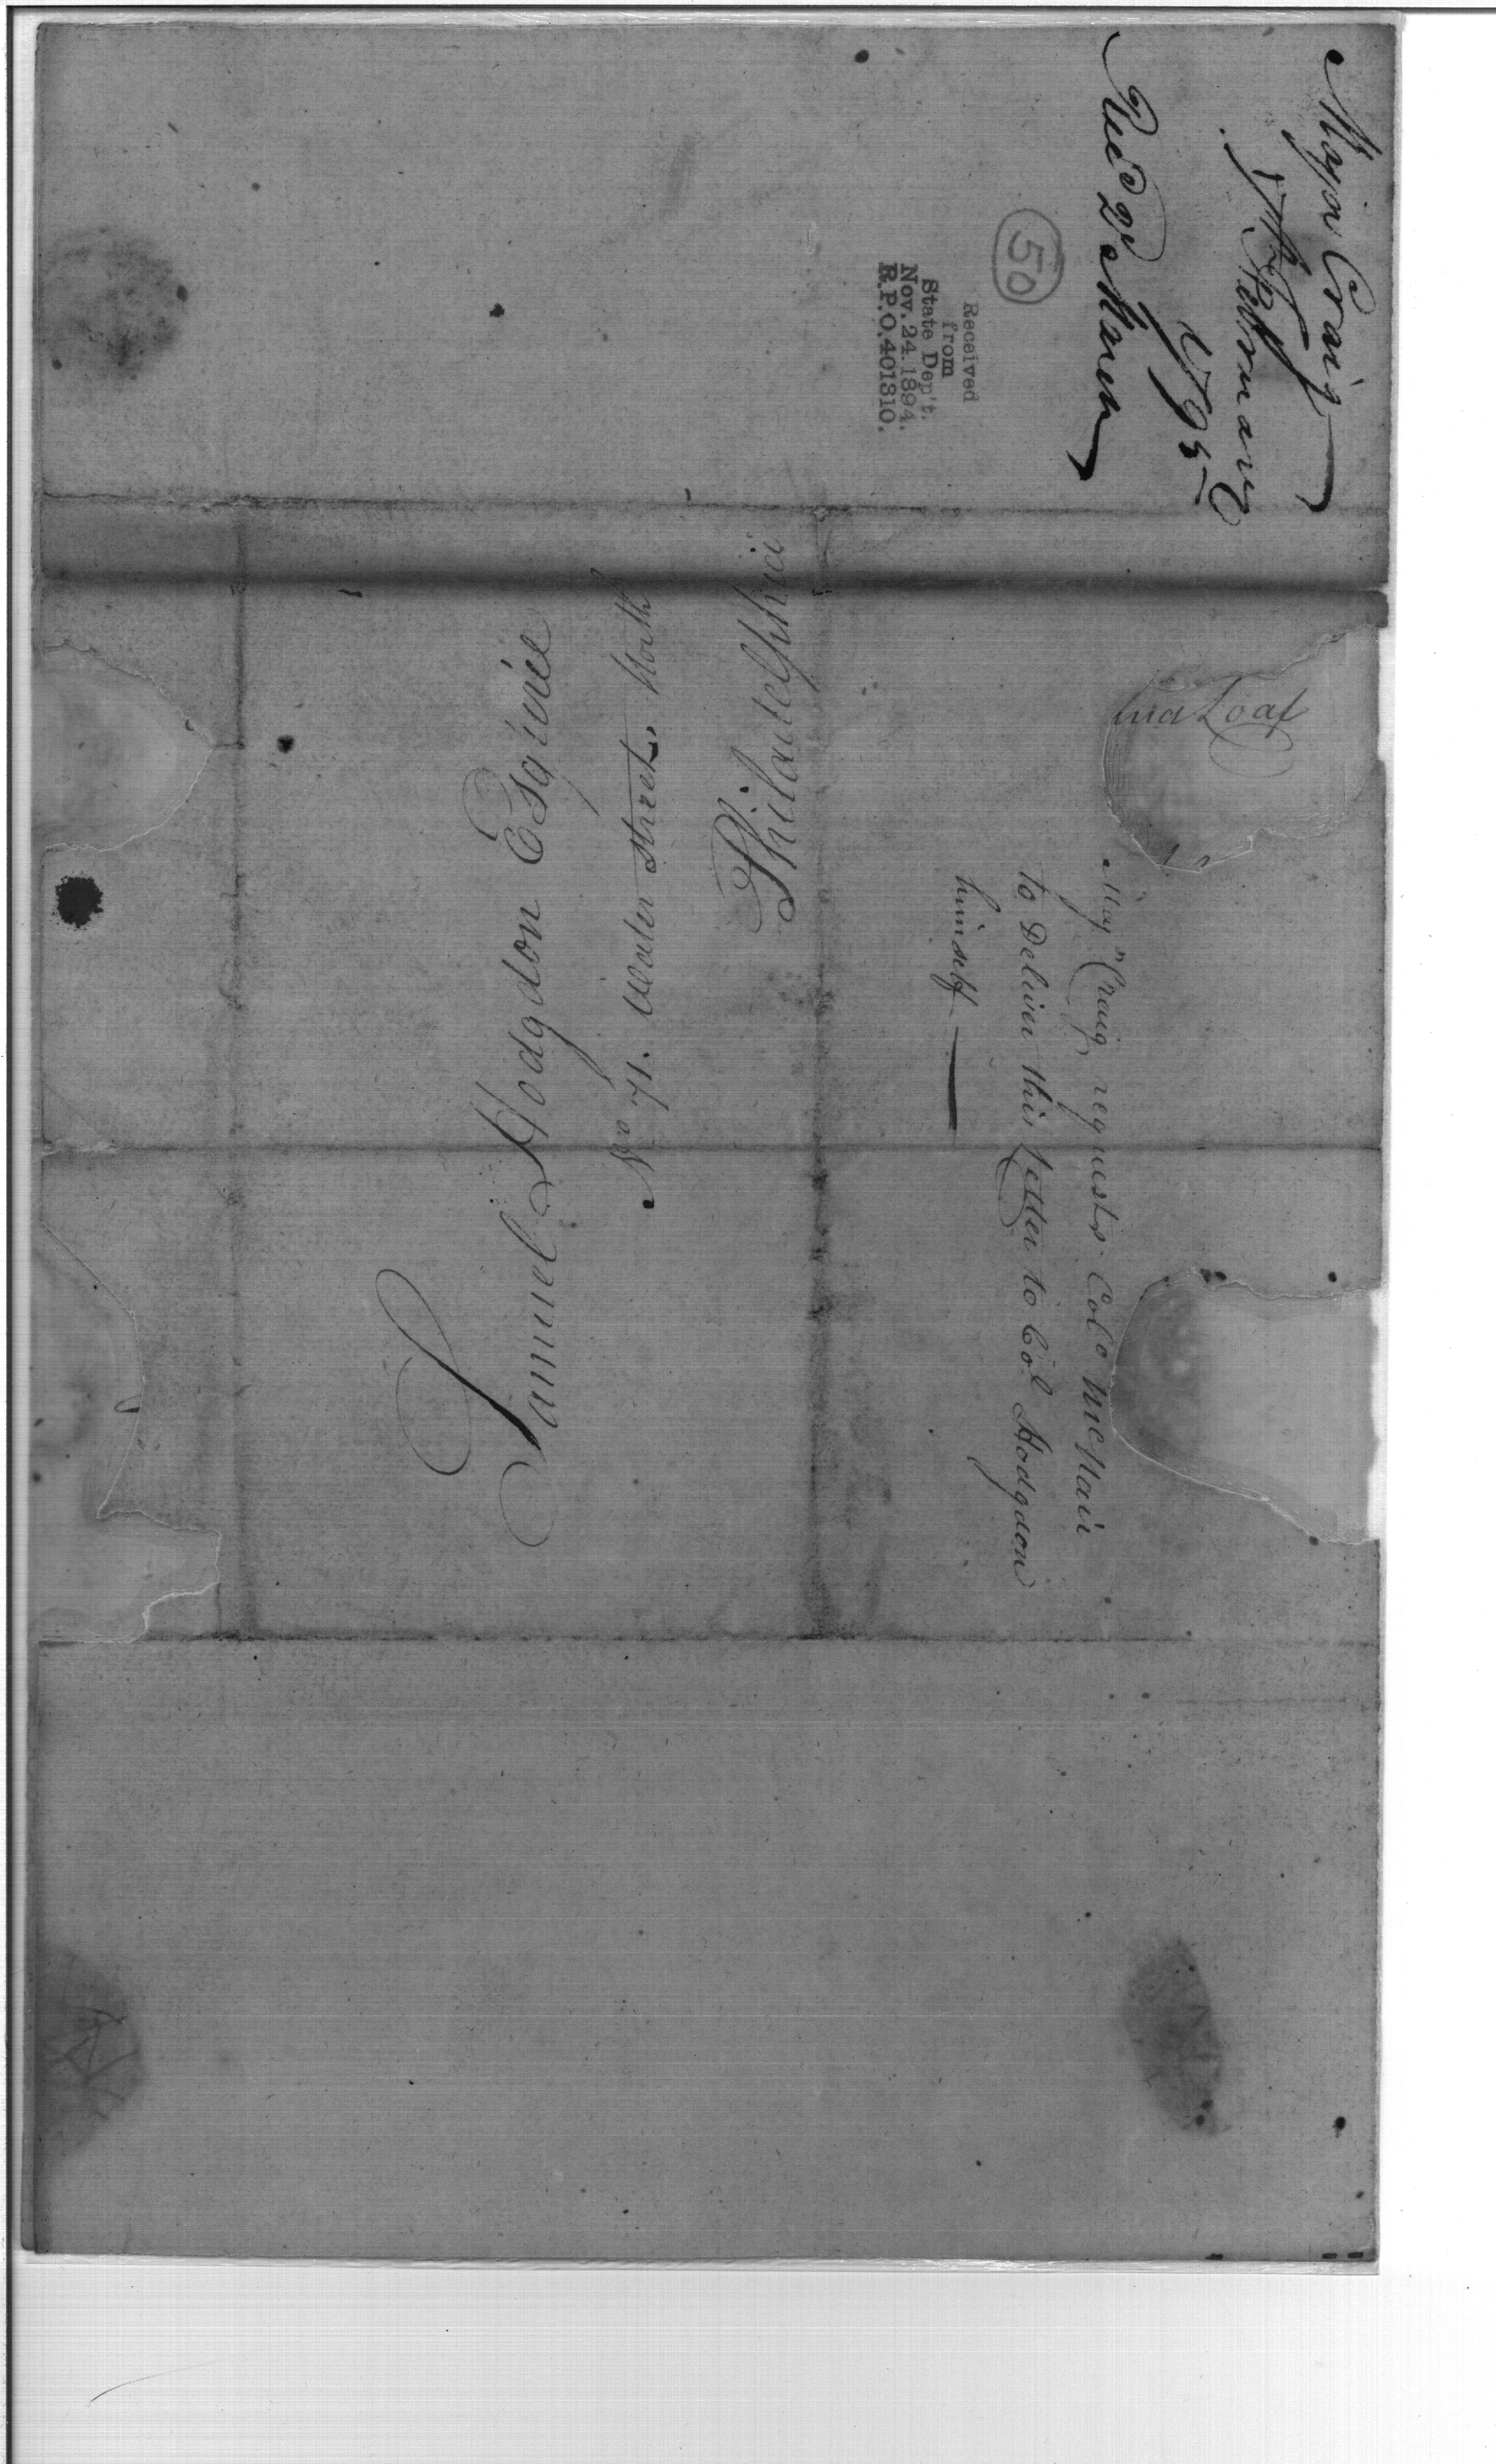 Major Craig
February
1795
Rec'd 2d March
50
Received
from
State Dep't.
Nov. 24. 1894.
R.P.O. 401310.
Samuel Hodgdon Esquire
No 71. Water Street. North
Philadelphia
Loaf
Majr Craig requests Colo McNair
to Deliver this Letter to Col Hodgdon
himself